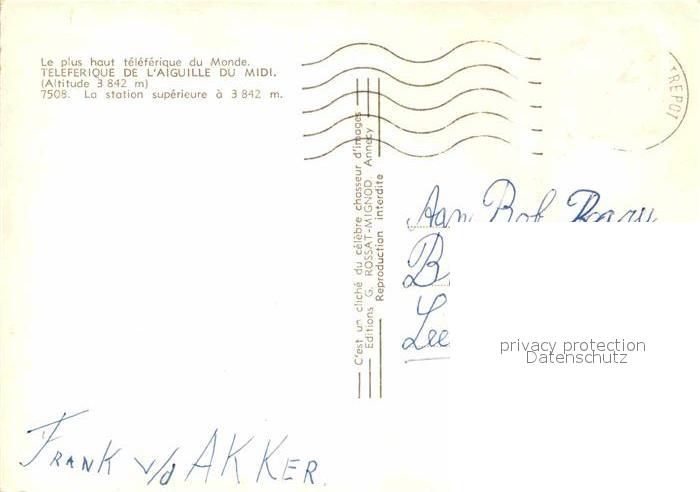 Le plus haut téléférique du Monde.
TELEFERIQUE DE L'AIGUILLE DU MIDI.
(Altitude 3 842 m)
7508. La station supérieure à 3 842 m.
TREPOT
C'est un cliché du célèbre chasseur d'images
Editions G. ROSSAT-MIGNOD. Annecy
Reproduction interdite
Aan Rob
B
Lee
privacy protection
Datenschutz
FRANK v/d AKKER.